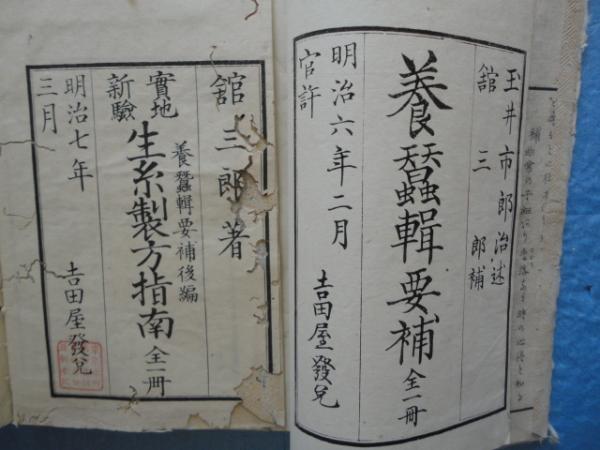 玉井市郎治述
舘三郎補
養蠶輯要補 全一冊
明治六年二月
官許
吉田屋發兌
舘三郎著
養蠶輯要補後編
實地
新驗
生糸製方指南 全一冊
明治七年
三月
吉田屋發兌